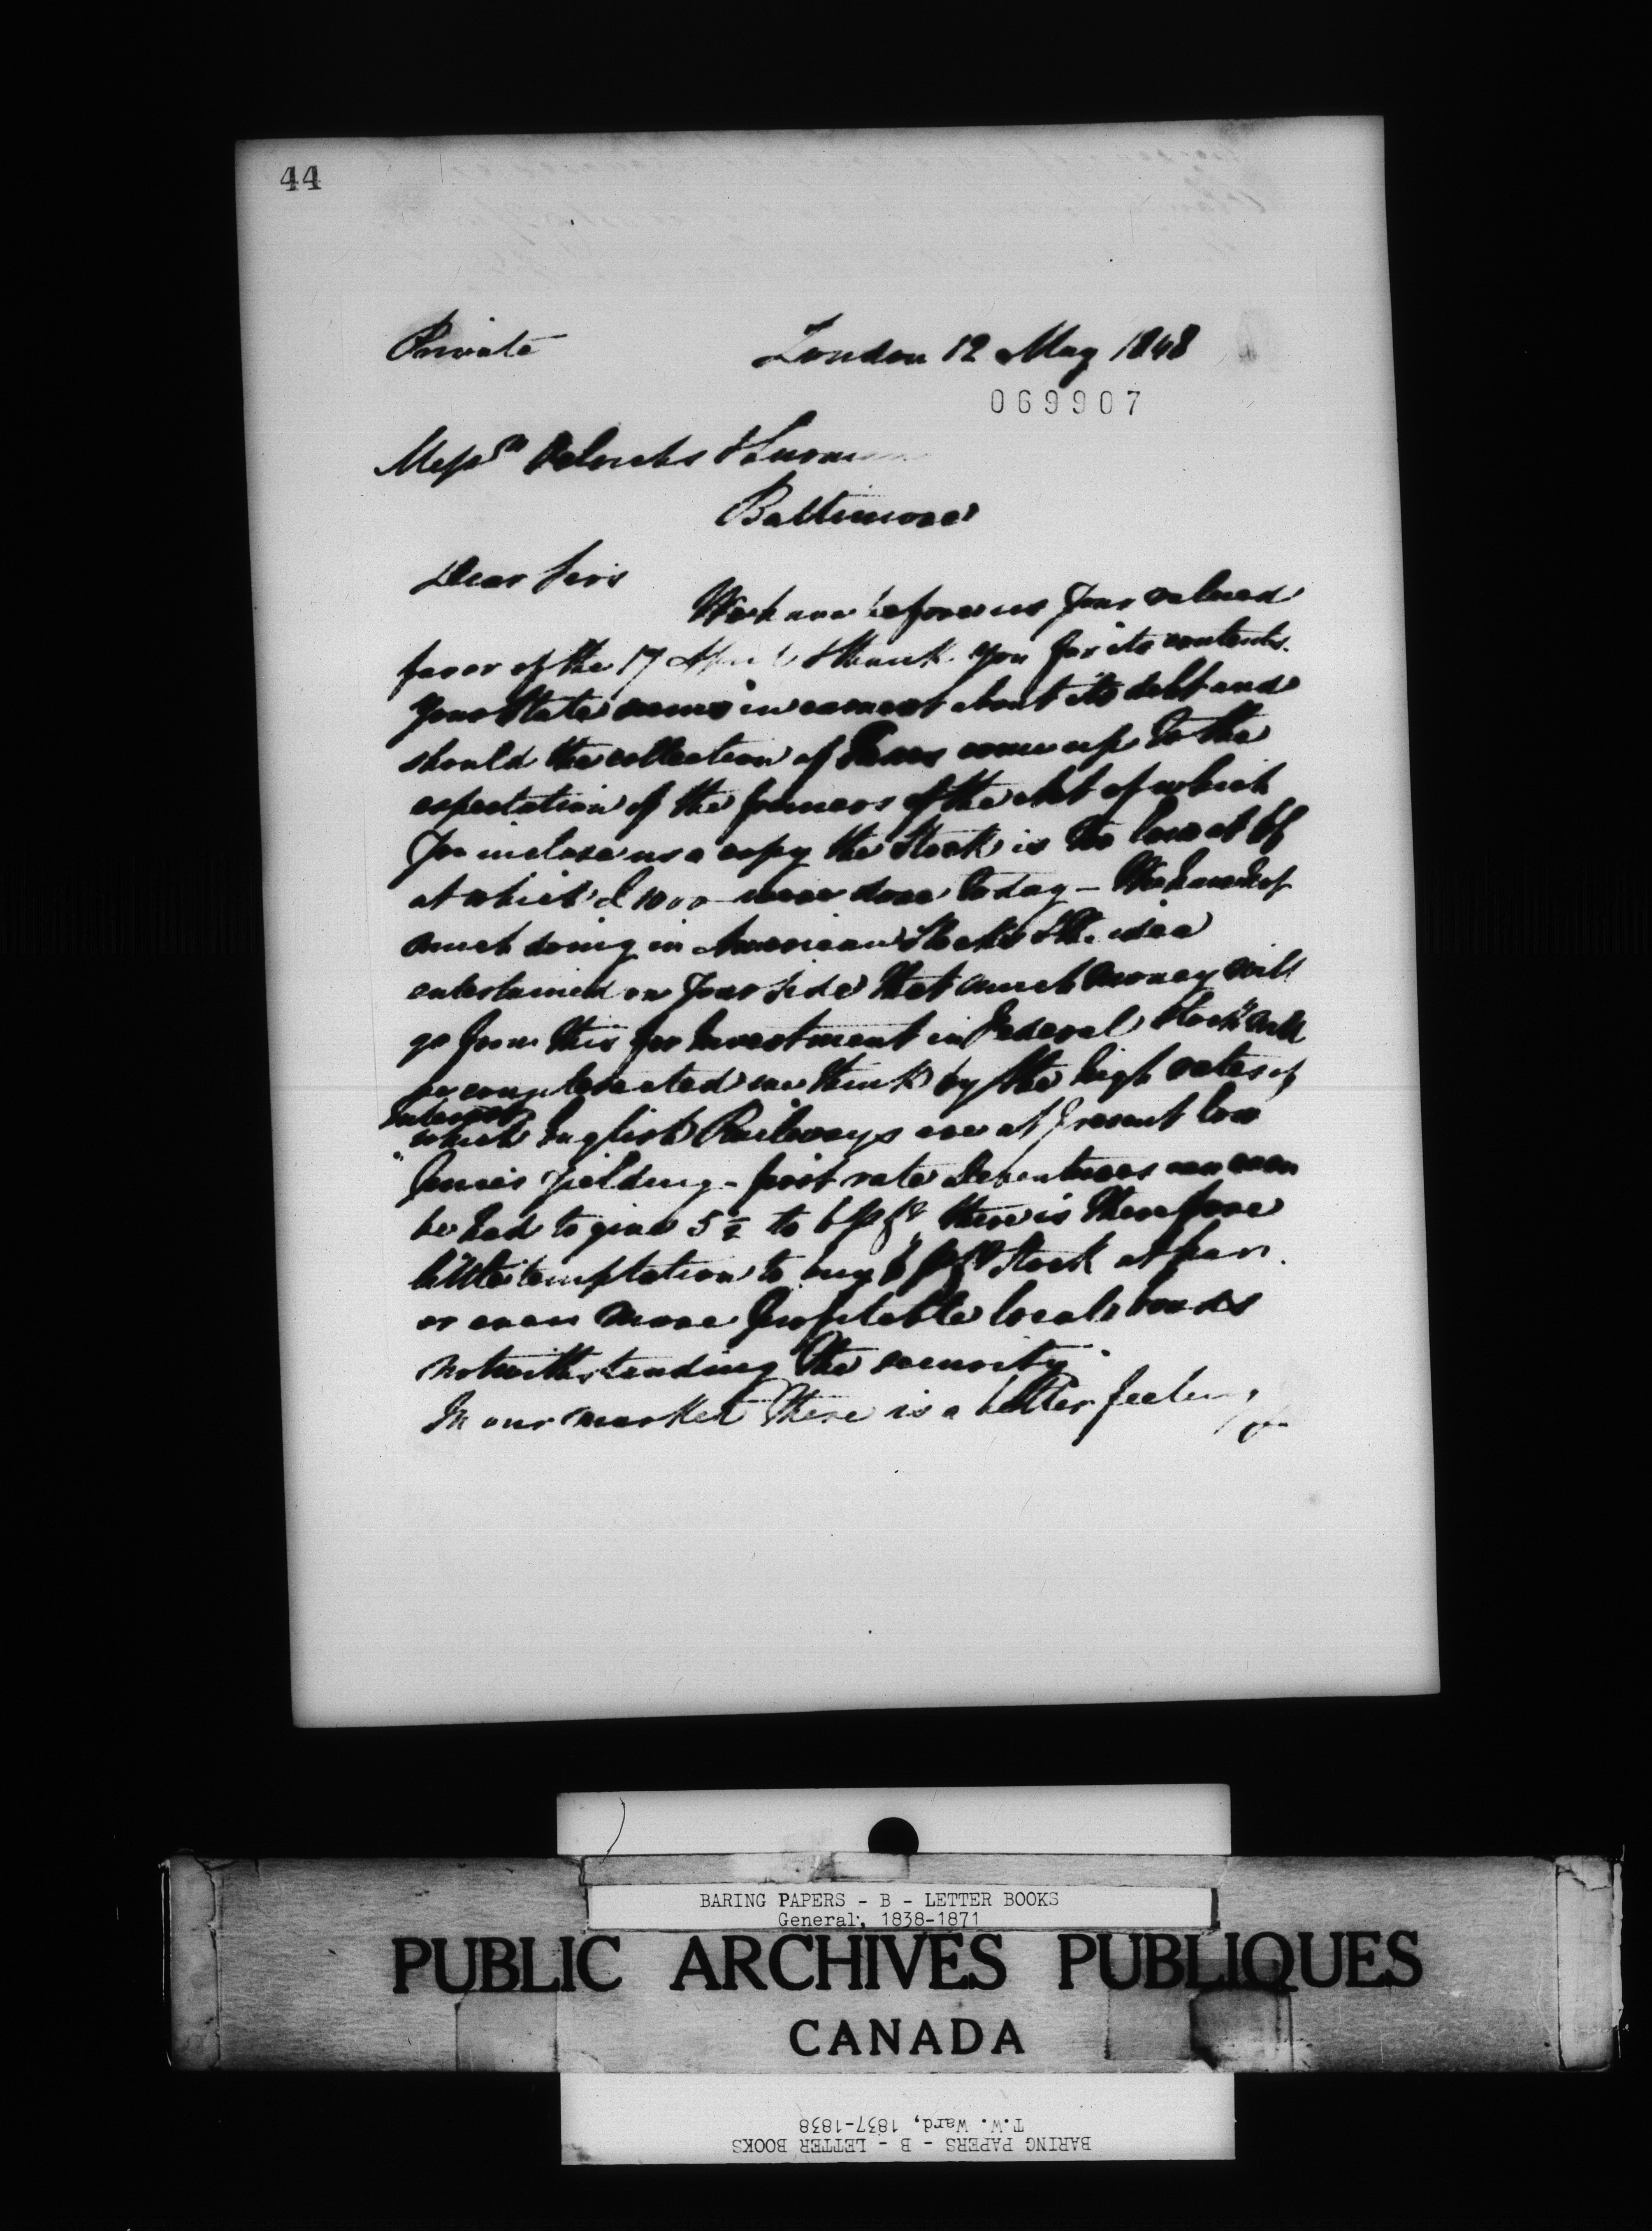 44
Private London 12 May 1848
069907
Mess<sup>rs</sup>
Baltimore
Dear Sirs
We have before us your valued
favor of the 17 April & thank you for its contents.
Your State seems in earnest about its debt and
should the collection of Taxes come up to the
expectation of the framers of the Act of which
you inclose us a copy the Stock is too low at
at which £1000 were done today –
much doing in American Stocks & the idea
entertained on your side that much money will
go from this for Investment in Federal Stock will
be counteracted we think by the high rates of
Interest
which English Railways are at present
yielding – first rate Debentures can even
be had to give 5½ to 6 there is therefore
little temptation to buy 6 Stock at par
or even more profitable local bonds
notwithstanding the security
In our market there is a better feeling
BARING PAPERS - B - LETTER BOOKS
General, 1838-1871
PUBLIC ARCHIVES PUBLIQUES
CANADA
T.W. Ward, 1837-1838
BARING PAPERS - B - LETTER BOOKS